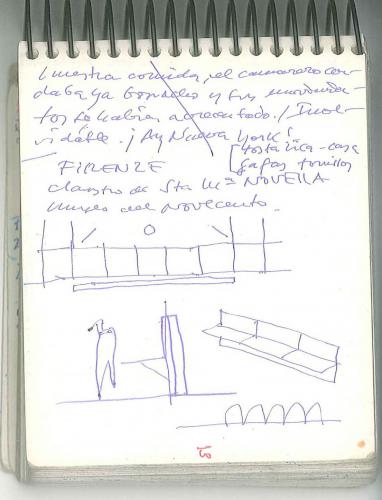 nuestra comida, el camarero con-
daba ya
tos se habían acrecentado. / Inol-
vidable. ¡Ay Nueva York!
[tostarica - casa
gafas tornillos
FIRENZE
claustro de Sta Mª NOVELLA
museo del novecento.